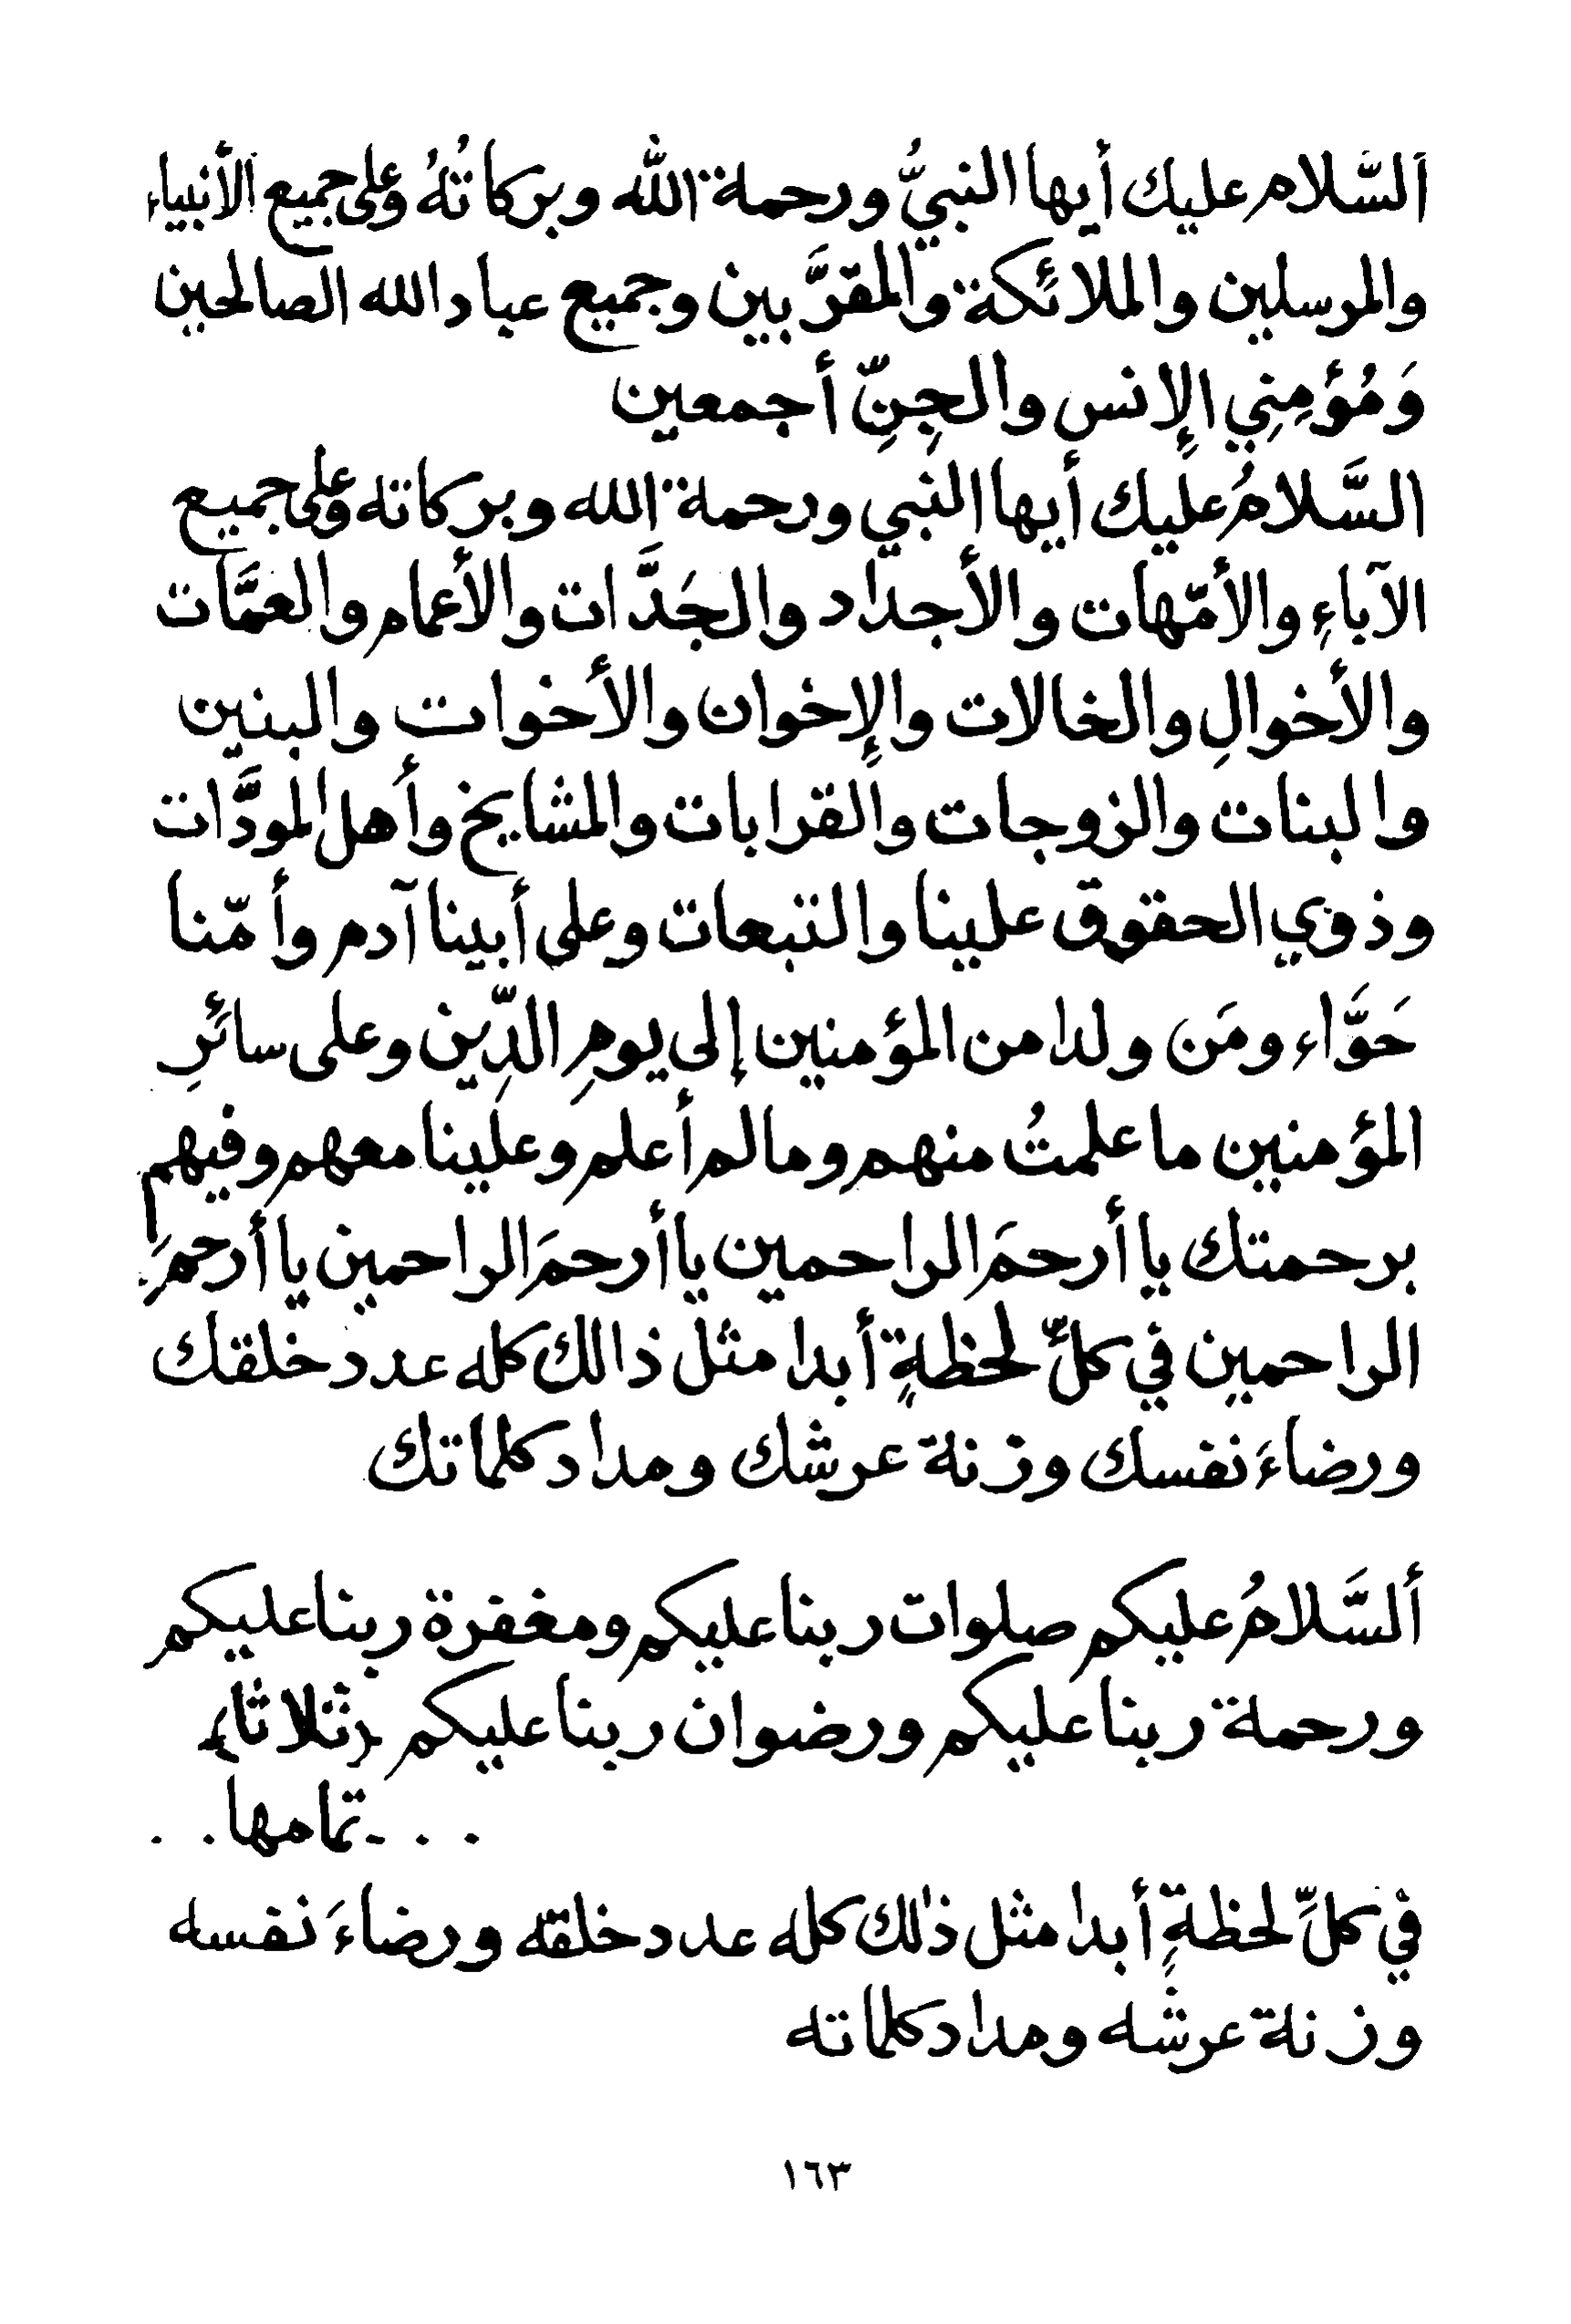 اَلسَّلام عليك أيها النبيُّ ورحمة الله وبركاتُهُ وعلى جميع الأنبياء
والمرسلين والملائكة والمقرَّبين وجميع عباد الله الصالحين
وَمُؤمِنِي الإنس والجِنِّ أجمعين
السَّلامُ عليك أيها النبي ورحمة الله وبركاته وعلى جميع
الآباءِ والأمّهات والأجداد والجَدَّات والأعمام والعمَّات
والأخوالِ والخالات والإخوان والأخوات والبنين
والبنات والزوجات والقرابات والمشايخ وأهل المودَّات
وذوي الحقوق علينا والتبعات وعلى أبينا آدم وأمّنا
حَوَّاء ومَن ولدا من المؤمنين إلى يومِ الدِّين وعلى سائرِ
المؤمنين ما علمتُ منهم وما لم أعلم وعلينا معهم وفيهم
برحمتك يا أرحمَ الراحمين يا أرحمَ الراحمين يا أرحمَ
الراحمين في كلِّ لحظةٍ أبدا مثل ذالك كله عدد خلقك
ورضاءَ نفسك وزنة عرشك ومداد كلماتك
ألسَّلامُ عليكم صلوات ربنا عليكم ومغفرة ربنا عليكم
ورحمة ربنا عليكم ورضوان ربنا عليكم (ثلاثا)
. . . تمامها . .
في كلِّ لحظةٍ أبدا مثل ذٰلك كله عدد خلقه ورضاءَ نفسه
وزنة عرشه ومداد كلماته
١٦٣